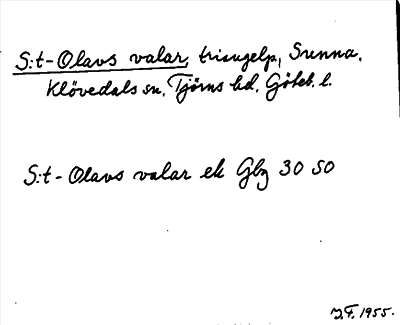 S:t-Olavs valar, triangelp., Sunna,
Klövedals sn, Tjörns hd, Göteb. l.
S:t-Olavs valar ek Gbg 30 SO
J.F. 1955.